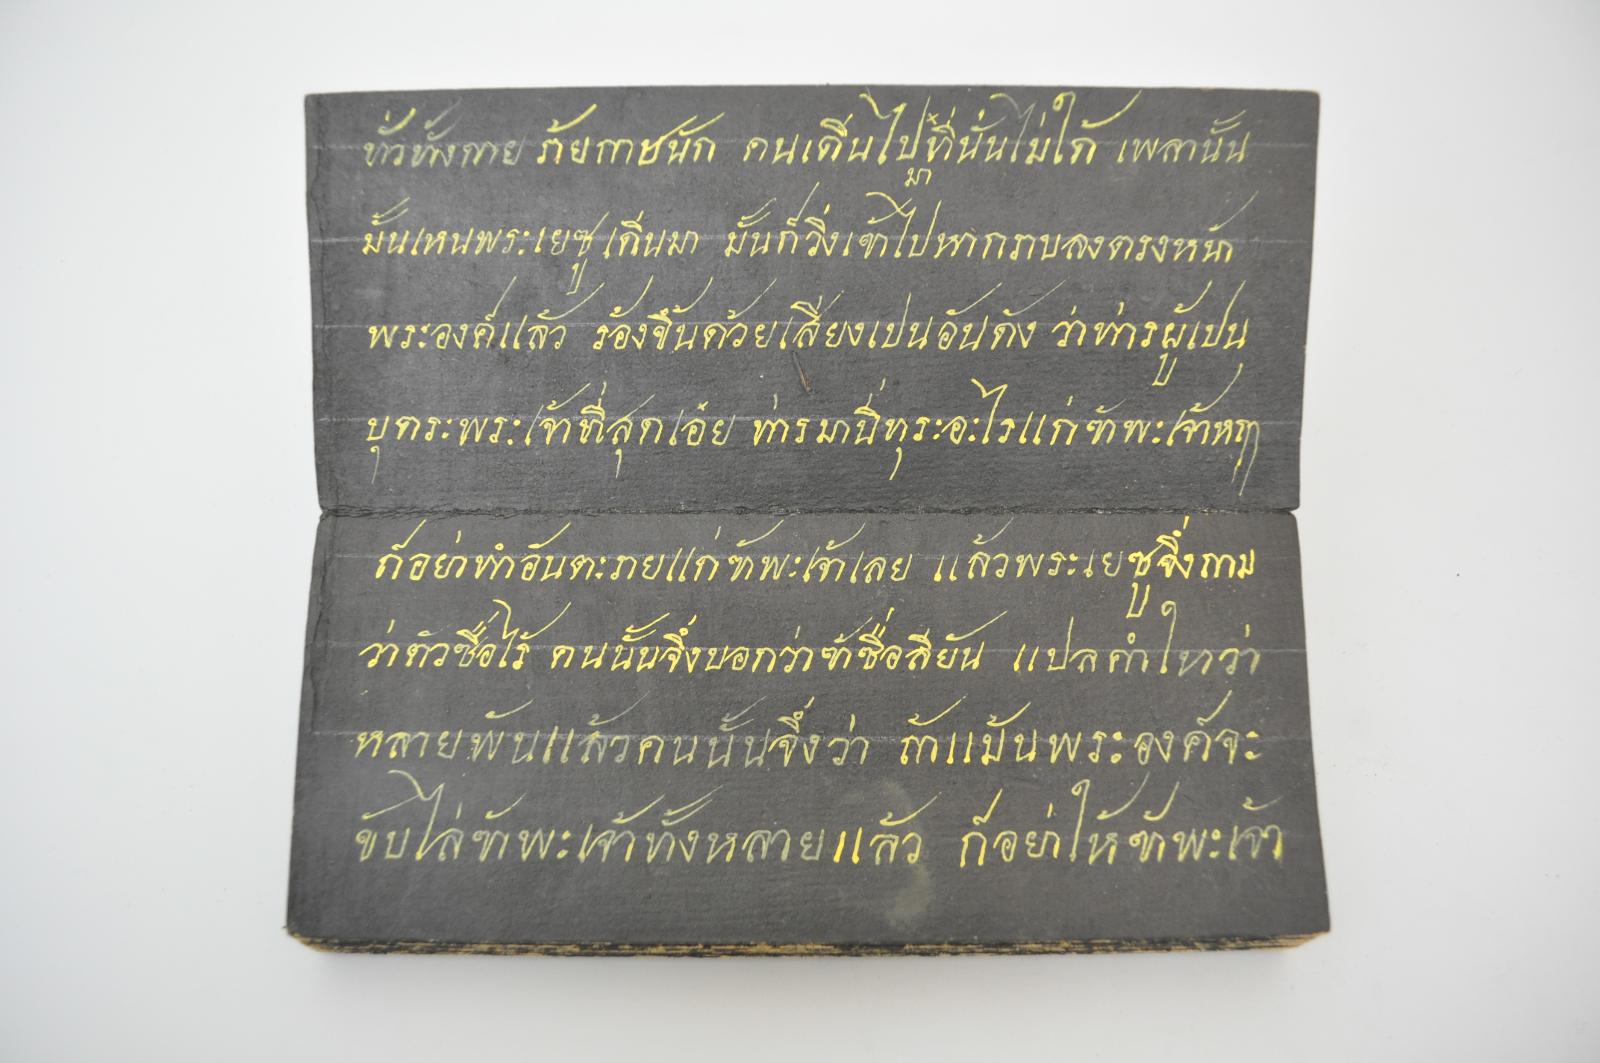 ทั่วทั้งกาย ก้ยกาษนัก คนเดีนไปที่นั่นไม่ใด้ เพลานั้น
มา
มั้นเหนพระเยซูเดีนมา มั้นก็วิ่งเข้าไปหากราบลงตรงหน้า
พระองค์แล้ว ร้องขึ้นด้วยเสียงเปนอันดัง ว่าท่ารผู้เปน
บุตระพระเจ้าที่สุดเอ๋ย ท่ารมามีทุระอะไรแก่ข้าพะเจ้าหฤๅ
ก็อย่าทำอันตะรายแก่ข้าพะเจ้าเลย แล้วพระเยซูจึ่งถาม
ว่าตัวชื่อไร้ คนนั้นจึ่งบอกว่าข้าชื่อลียัน แปลคำไทว่า
หลายพันแล้วคนนั้นจึ่งว่า ถ้าแม้นพระองค์จะ
ขับไล่ข้าพะเจ้าทั้งหลายแล้ว ก็อย่าให้ข้าพะเจ้า